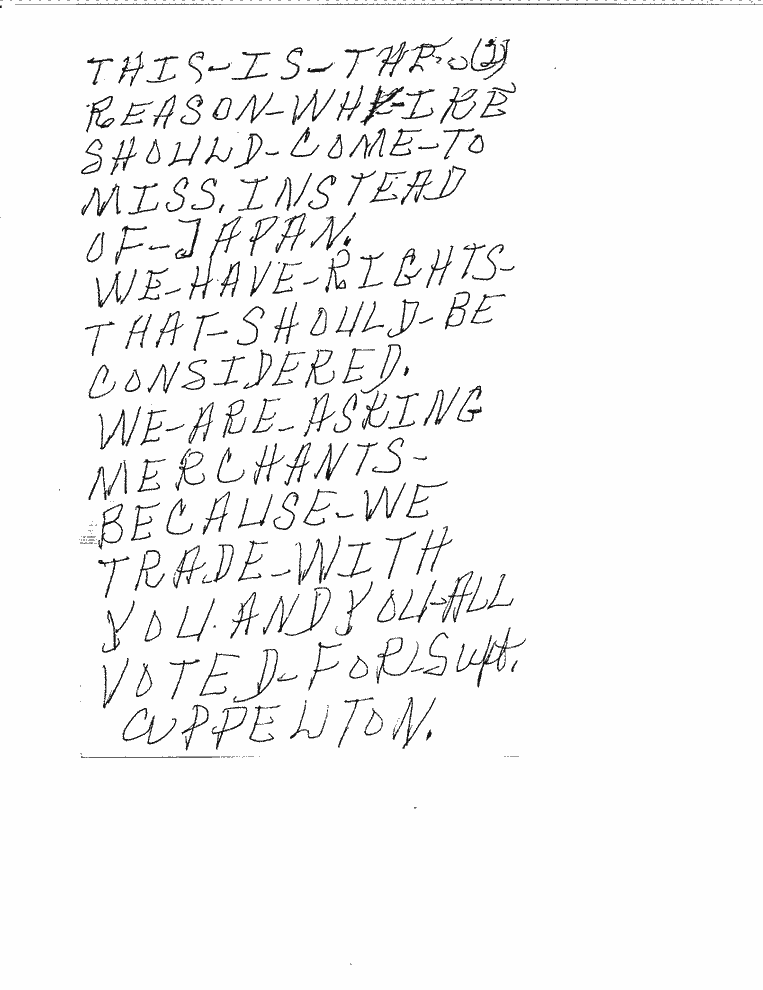 THIS-IS-THE. (2)
REASON-WHY-IKE
SHOULD-COME-TO
MISS. INSTEAD
OF-JAPAN.
WE-HAVE-RIGHTS-
THAT-SHOULD-BE
CONSIDERED.
WE-ARE-ASKING
MERCHANTS-
BECAUSE-WE
TRADE-WITH
YOU. AND YOU-ALL
VOTED-FOR-Supt.